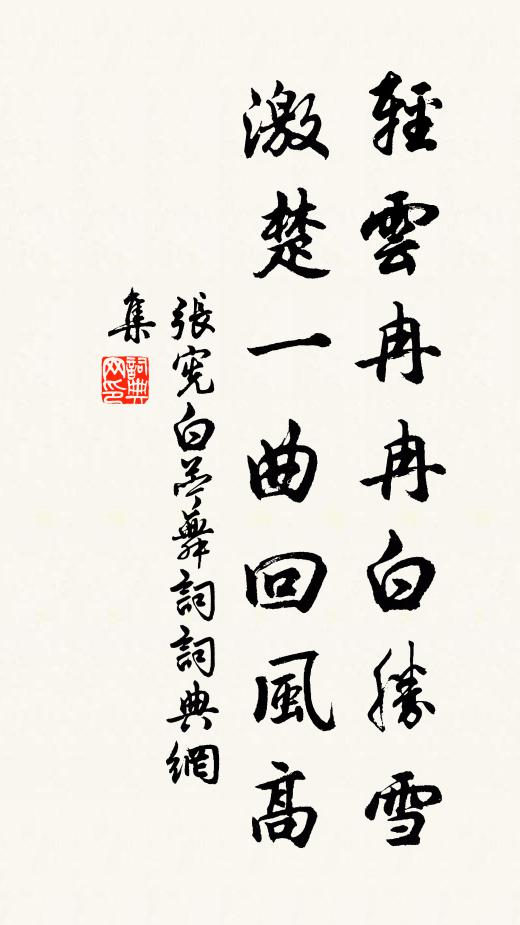 輕雲冉冉白勝雪
激楚一曲回風高
張宪白苧舞詞詞典網
集
詞典
网印